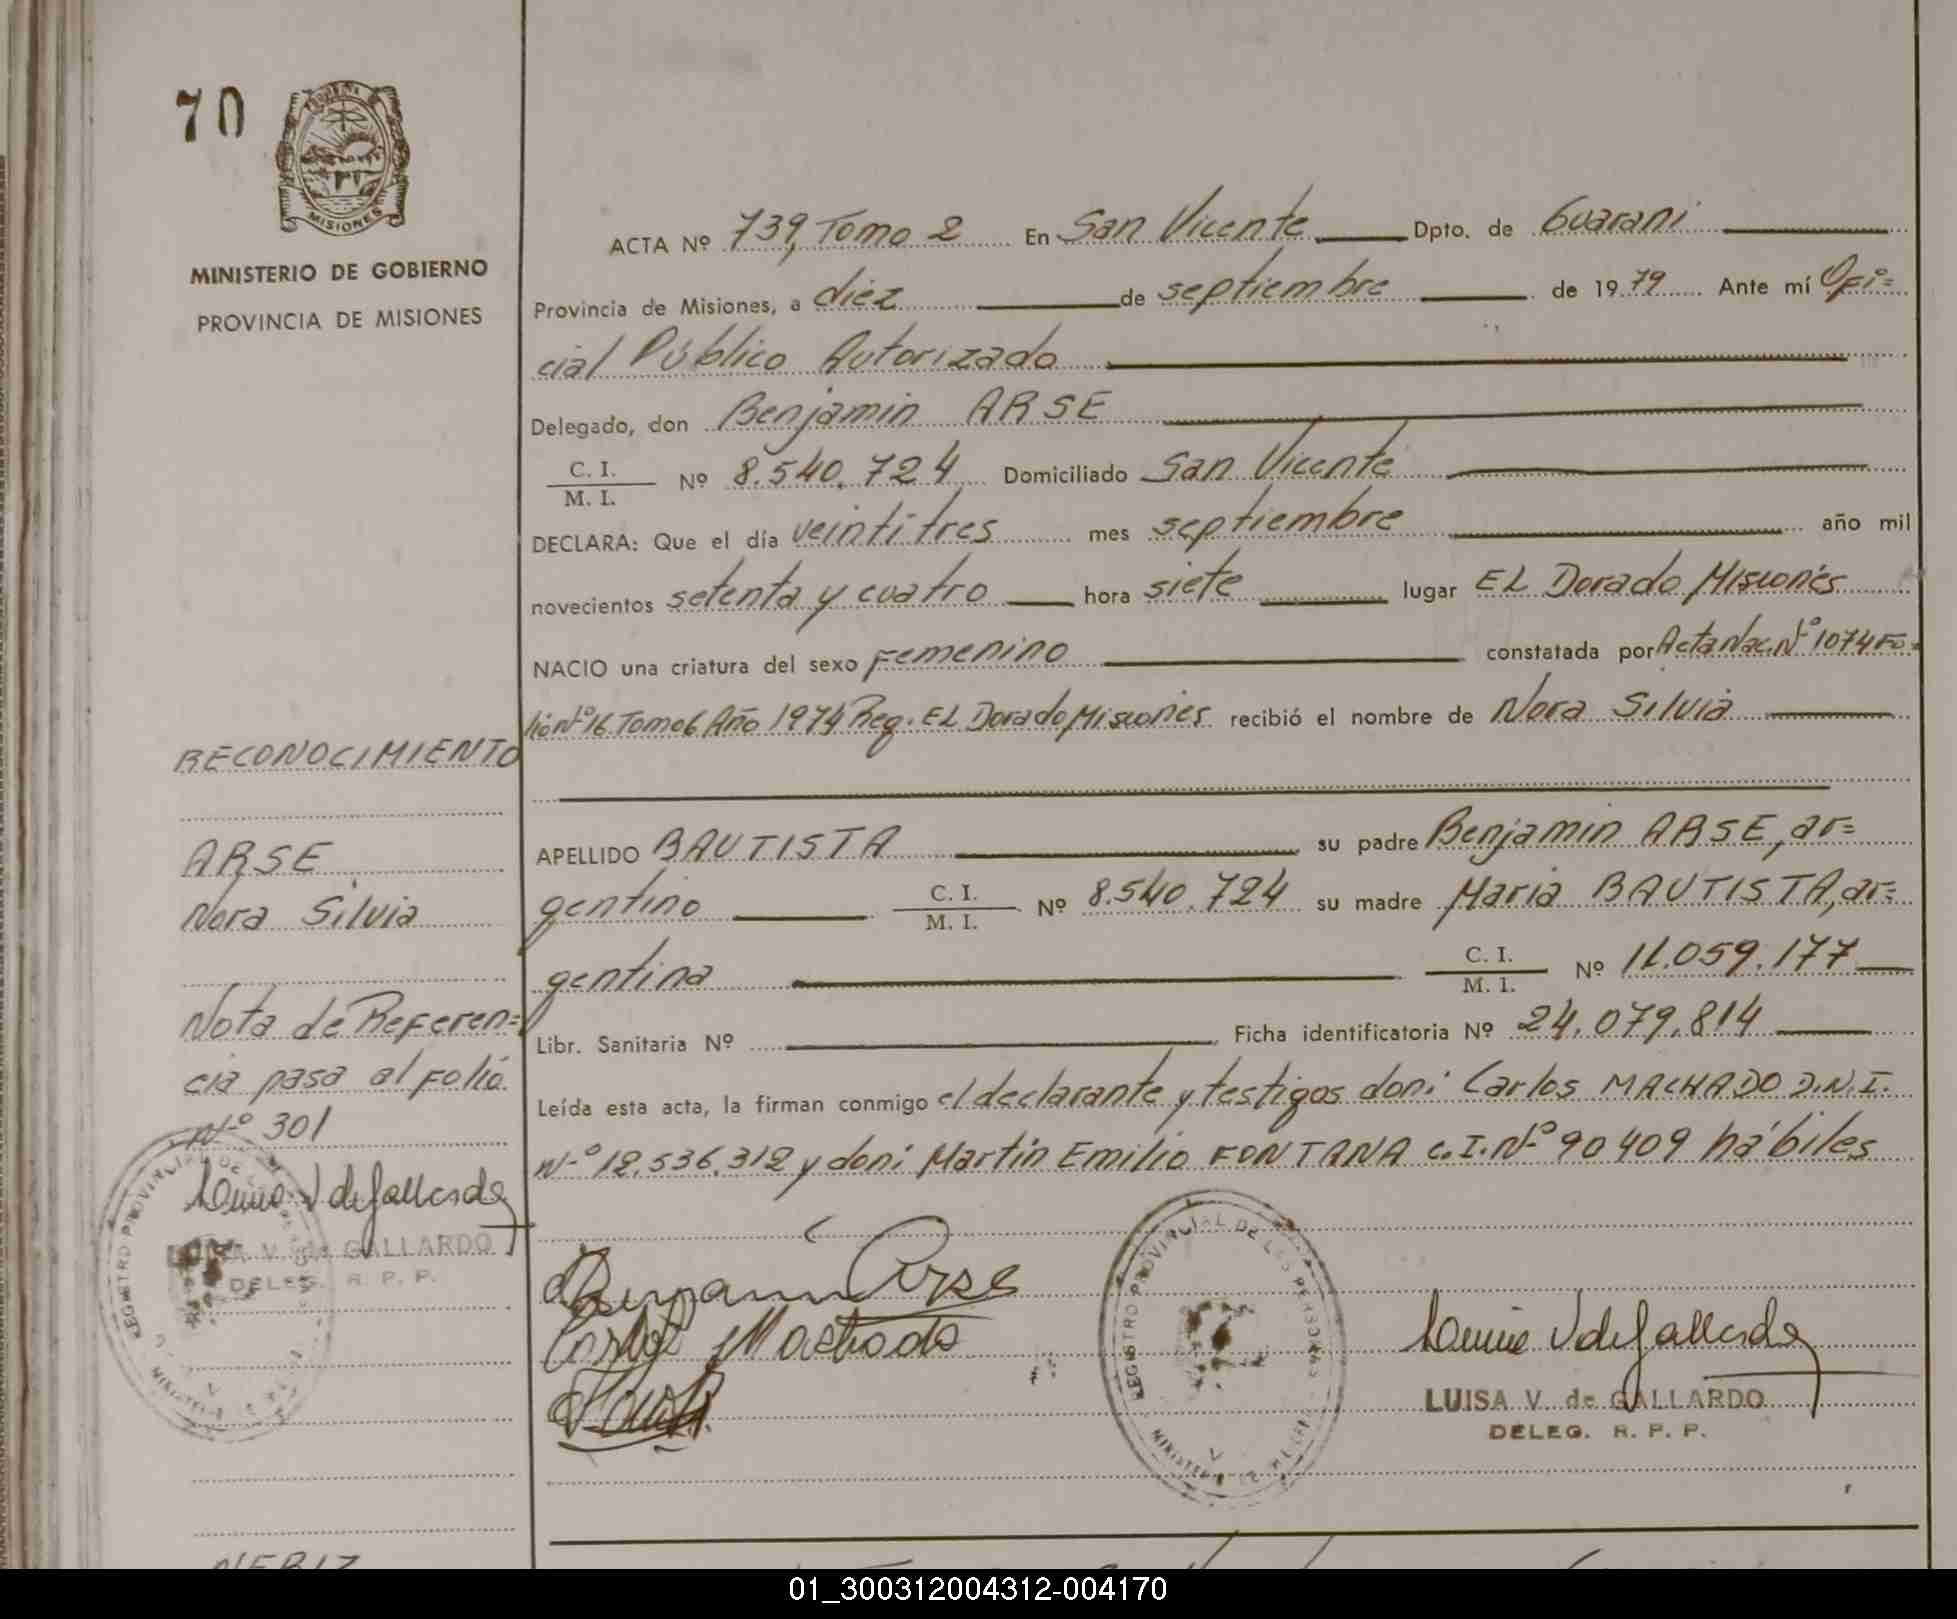 70
MISIONES
MINISTERIO DE GOBIERNO
PROVINCIA DE MISIONES
RECONOCIMIENTO
ARSE
Nora Silvia
Nota de Referen=
cia pasa al Folio
Nº 301
LUISA V. de GALLARDO
DELEG. R. P. P.
ACTA Nº 739, Tomo 2 En San Vicente Dpto. de Guarani
Provincia de Misiones, a diez de septiembre de 1979 Ante mí Ofi=
cial Público Autorizado
Delegado, don Benjamin ARSE
C. I.
M. I. Nº 8.540.724 Domiciliado San Vicente
DECLARA: Que el día veintitres mes septiembre año mil
novecientos setenta y cuatro hora siete lugar EL Dorado Misiones
NACIO una criatura del sexo Femenino constatada por Acta Nac. Nº 1074 Fo=
lio Nº 16 Tomo 6 Año 1974 Reg. EL Dorado Misiones recibió el nombre de Nora Silvia
APELLIDO BAUTISTA su padre Benjamin ARSE, ar=
gentino C. I.
M. I. Nº 8.540.724 su madre Maria BAUTISTA, ar=
gentina C. I.
M. I. Nº 11.059.177
Libr. Sanitaria Nº Ficha identificatoria Nº 24.079.814
Leída esta acta, la firman conmigo el declarante y testigos don: Carlos MACHADO D.N.I.
Nº 12.536.312 y don: Martin Emilio FONTANA C.I. Nº 90409 hábiles
Benjamin Arse
Carlos Machado
REGISTRO PROVINCIAL DE LAS PERSONAS
LUISA V. de GALLARDO
DELEG. R. P. P.
01_300312004312-004170